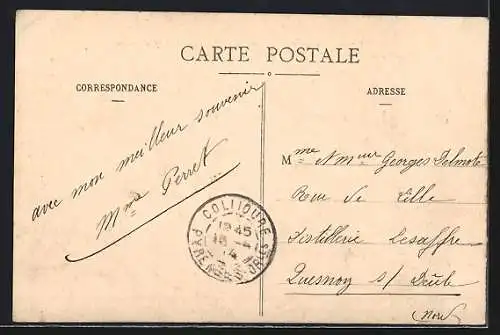 CARTE POSTALE
CORRESPONDANCE
ADRESSE
avec mon meilleur souvenir
Mme Perret
COLLIOURE
1945
15 -4
14
PYRÉNÉES-ORles
Mme & Mmeur Georges Delmotte
Rue de Lille
Distillerie Lesaffre
Quesnoy s/ Deûle
Nord